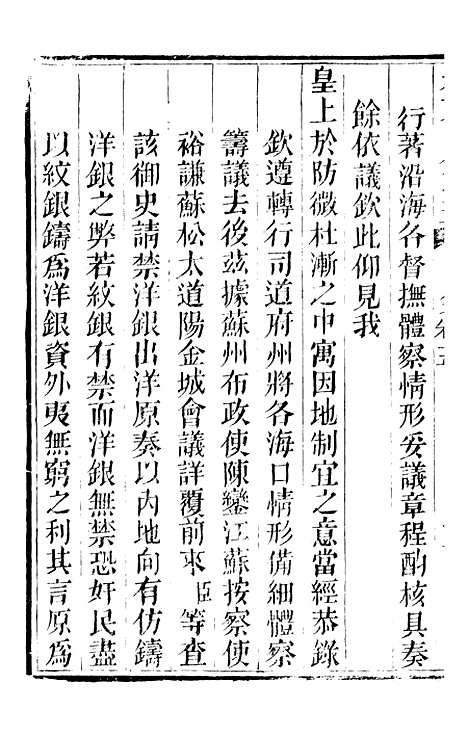 行著沿海各督撫體察情形妥議章程酌核具奏
餘依議欽此仰見我
皇上於防微杜漸之中寓因地制宜之意當經恭錄
欽遵轉行司道府州將各海口情形備細體察
籌議去後茲據蘇州布政使陳鑾江蘇按察使
裕謙蘇松太道陽金城會議詳覆前來臣等查
該御史請禁洋銀出洋原奏以內地向有仿鑄
洋銀之弊若紋銀有禁而洋銀無禁恐奸民盡
以紋銀鑄為洋銀資外夷無窮之利其言原為